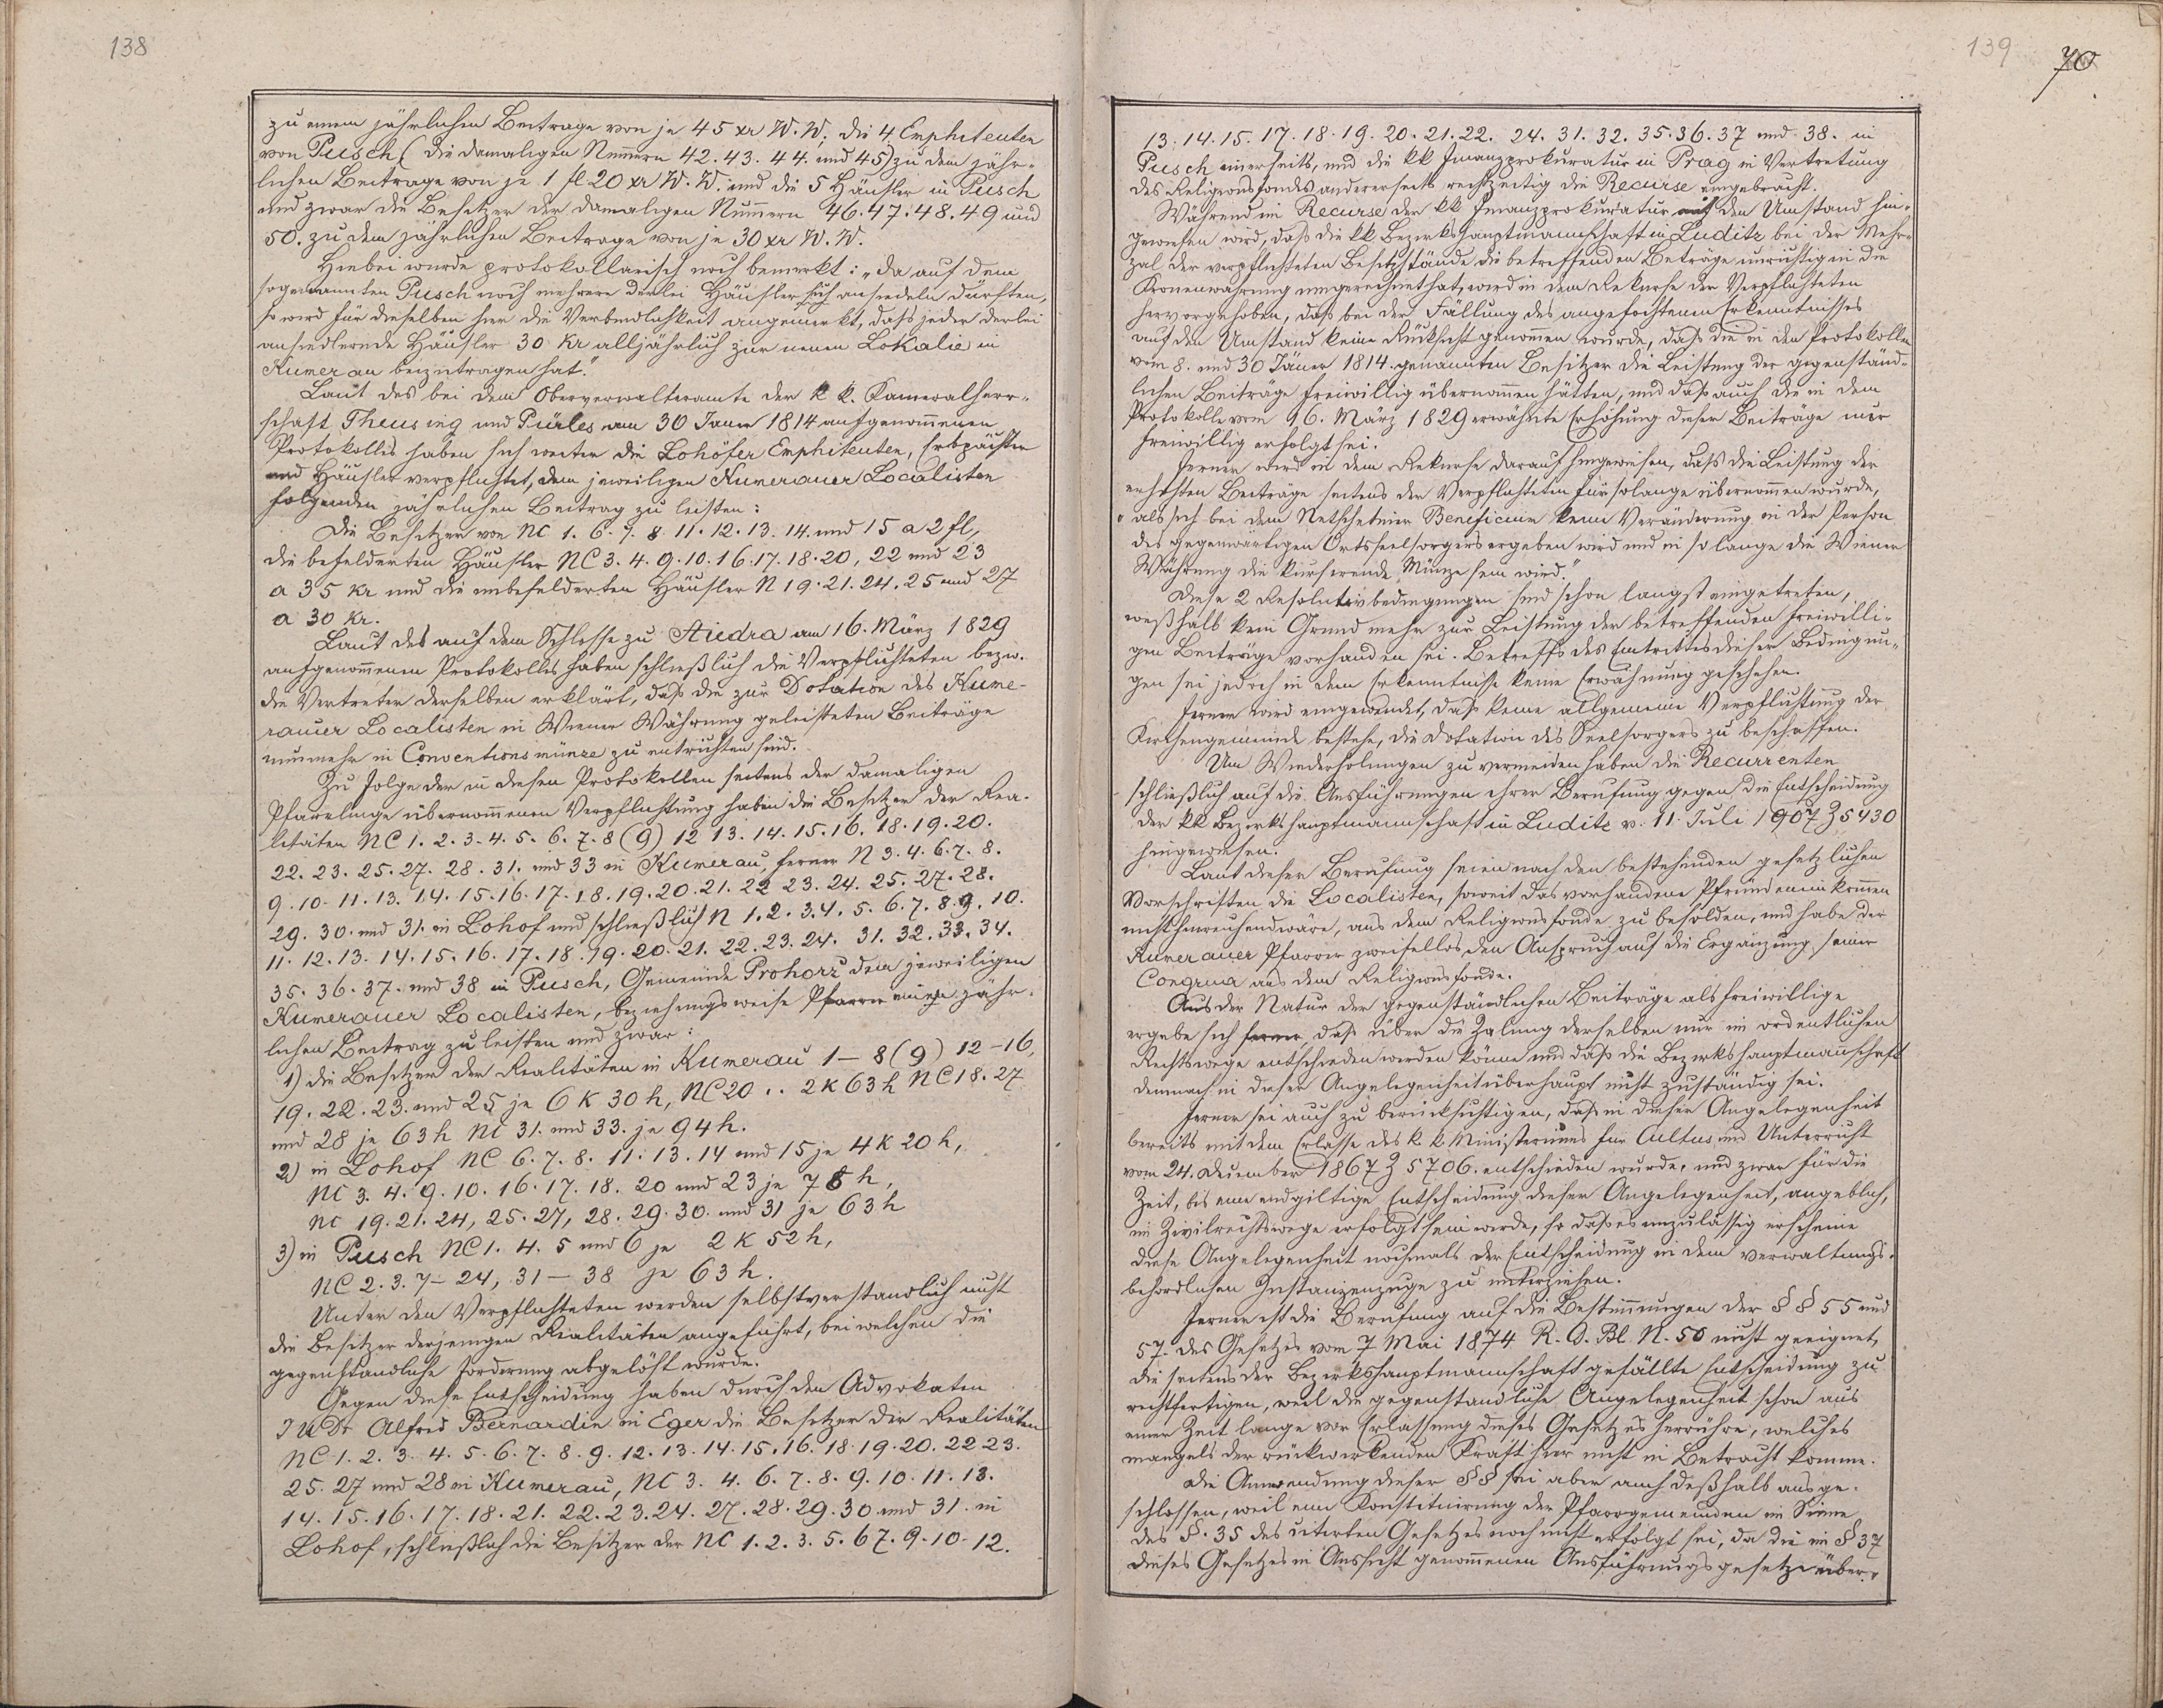 138
zu einem jährlichen Beitrage von je 45 xr W. W., die 4 Emphiteuten
von Pusch (die damaligen Nummern 42. 43. 44. und 45) zu dem jähr-
lichen Beitrage von je 1 fl 20 xr W. W. und die 5 Häusler in Pusch
und zwar die Besitzer der damaligen Nummern 46. 47. 48. 49 und
50. zu dem jährlichen Beitrage von je 30 xr W. W.
Hiebei wurde protokollarisch noch bemerkt: „da auf dem
sogenannten Pusch noch mehrere derlei Häusler sich ansiedeln dürften,
so wird für dieselben hier die Verbindlichkeit angemerkt, daß jeder derlei
ansiedlernde Häusler 30 kr alljährlich zur neuen Lokalie in
Kumerau beizutragen hat."
Laut des bei dem Oberverwalteramte der k k. Kameralherr-
schaft Theusing und Pürles am 30 Janer 1814 aufgenommenen
Protokolles haben sich weiter die Lohöfer Emphiteuten, Erbpächter
und Häusler verpflichtet, dem jeweiligen Kumerauer Localisten
folgenden jährlichen Beitrag zu leisten:
Die Besitzer von NC 1. 6. 7. 8. 11. 12. 13. 14. und 15 a 2 fl,
die befelderten Häusler NC 3. 4. 9. 10. 16. 17. 18. 20, 22 und 23
a 35 kr und die unbefelderten Häusler N 19. 21. 24. 25 und 27
a 30 kr.
Laut des auf dem Schlosse zu Stiedra am 16. März 1829
aufgenommenen Protokolles haben schließlich die Verpflichteten bezw.
die Vertreter derselben erklärt, daß die zur Dotation des Kume-
rauer Localisten in Wiener Währung geleisteten Beiträge
nunmehr in Conventionsmünze zu entrichten sind.
Zu Folge der in diesen Protokollen seitens der damaligen
Pfarrlinge übernommenen Verpflichtung haben die Besitzer der Rea-
litäten NC 1. 2. 3. 4. 5. 6. 7. 8 (9) 12 13. 14. 15. 16. 18. 19. 20.
22. 23. 25. 27. 28. 31. und 33 in Kumerau, ferner N 3. 4. 6. 7. 8.
9. 10. 11. 13. 14. 15. 16. 17. 18. 19. 20. 21. 22 23. 24. 25. 27. 28.
29. 30. und 31. in Lohof und schließlich N 1. 2. 3. 4. 5. 6. 7. 8. 9. 10.
11. 12. 13. 14. 15. 16. 17. 18. 19. 20. 21. 22. 23. 24. 31. 32. 33. 34.
35. 36. 37. und 38 in Pusch, Gemeinde Prohorz dem jeweiligen
Kumerauer Localisten, beziehungsweise Pfarrer einen jähr-
lichen Beitrag zu leisten und zwar:
1) die Besitzer der Realitäten in Kumerau 1 – 8 (9) 12 – 16,
19. 22. 23. und 25 je 6 K 30 h, NC 20 .. 2 K 63 h NC 18. 27
und 28 je 63 h NC 31. und 33. je 94 h.
2) in Lohof NC 6. 7. 8. 11. 13. 14 und 15 je 4 K 20 h,
NC 3. 4. 9. 10. 16. 17. 18. 20 und 23 je 78 h,
NC 19. 21. 24, 25. 27, 28. 29. 30. und 31 je 63 h
3) in Pusch NC 1. 4. 5 und 6 je 2 K 52 h,
NC 2. 3. 7 – 24, 31 – 38 je 63 h.
Unter den Verpflichteten werden selbstverstandlich nicht
die Besitzer derjenigen Realitäten angeführt, bei welchen die
gegenstandliche Forderung abgelöst wurde.
Gegen diese Entscheidung haben durch den Advokaten
JUDr Alfred Bernardin in Eger die Besitzer der Realitäten
NC 1. 2. 3. 4. 5. 6. 7. 8. 9. 12. 13. 14. 15. 16. 18. 19. 20. 22 23.
25. 27 und 28 in Kumerau, NC 3. 4. 6. 7. 8. 9. 10. 11. 13.
14. 15. 16. 17. 18. 21. 22. 23. 24. 27. 28. 29. 30 und 31. in
Lohof, schließlich die Besitzer der NC 1. 2. 3. 5. 6 7. 9. 10. 12.
139
70
13. 14. 15. 17. 18. 19. 20. 21. 22. 24. 31. 32. 35. 36. 37 und 38. in
Pusch einerseits, und die kk Finanzprokuratur in Prag in Vertretung
des Religionsfondes andererseits rechtzeitig die Recurse eingebracht.
Während im Recurse der kk Finanzprokuratur auf den Umstand hin-
gewiesen wird, daß die kk Bezirkshauptmannschaft in Luditz bei der Mehr-
zal der verpflichteten Besitzstände die betreffenden Beträge unrichtig in die
Kronenwährung umgerechnet hat, wird in dem Rekurse der Verpflichteten
hervorgehoben, daß bei der Fällung des angefochtenen Erkenntnisses
auf den Umstand keine Rücksicht genommen wurde, daß die in den Protokollen
vom 8. und 30 Jäner 1814. genannten Besitzer die Leistung der gegenständ-
lichen Beiträge freiwillig übernommen hätten, und daß auch die in dem
Protokolle vom 16. März 1829 erwähnte Erhöhung dieser Beiträge nur
freiwillig erfolgt sei.
Ferner wird in dem Rekurse darauf hingewiesen, daß die Leistung der
erhöhten Beiträge seitens der Verpflichteten für solange übernommen wurde,
„als sich bei dem Netschetiner Beneficium keine Veränderung in der Person
des gegenwärtigen Ortsseelsorgers ergeben wird und in so lange die Wiener
Währung die kursirende Münze sein wird."
Diese 2 Resolutivbedingungen sind schon langst eingetreten,
weßhalb kein Grund mehr zur Leistung der betreffenden freiwilli-
gen Beiträge vorhanden sei. Betreffs des Eintrittes dieser Bedingun-
gen sei jedoch in dem Erkenntnisse keine Erwähnung geschehen.
Ferner wird eingewendet, daß keine allgemeine Verpflichtung der
Kirchengemeinde bestehe, die Dotation des Seelsorgers zu beschaffen.
Um Wiederholungen zu vermeiden haben die Recurrenten
schließlich auf die Ausführungen ihrer Berufung gegen die Entscheidung
der kk Bezirkshauptmannschaft in Luditz v. 11. Juli 1907 Z 5430
hingewiesen.
Laut dieser Berufung seien nach den bestehenden gesetzlichen
Vorschriften die Localisten, soweit das vorhandene Pfründeneinkommen
nicht hinreichend wäre, aus dem Religionsfonde zu besolden, und habe der
Kumerauer Pfarrer zweifellos den Anspruch auf die Ergänzung seiner
Congrua aus dem Religionsfonde.
Aus der Natur der gegenständlichen Beiträge als freiwillige
ergebe sich ferner, daß über die Zalung derselben nur im ordentlichen
Rechtswege entschieden werden könne und daß die Bezirkshauptmannschaft
demnach in dieser Angelegenheit überhaupt nicht zuständig sei.
Ferner sei auch zu berücksichtigen, daß in dieser Angelegenheit
bereits mit dem Erlasse des k k Ministeriums für Cultus und Unterricht
vom 24. Dezember 1867 Z 5706. entschieden wurde, und zwar für die
Zeit, bis eine endgiltige Entscheidung dieser Angelegenheit, angeblich,
im Zivilrechtswege erfolgt sein werde, so daß es unzulässig erscheine
diese Angelegenheit nochmals der Entscheidung in dem verwaltungs-
behördlichen Instanzenzuge zu unterziehen.
Ferner ist die Berufung auf die Bestimmungen der §§ 55 und
57. des Gesetzes vom 7 Mai 1874 R. G. Bl. N. 50 nicht geeignet,
die seitens der Bezirkshauptmannschaft gefällte Entscheidung zu
rechtfertigen, weil die gegenstandliche Angelegenheit schon aus
einer Zeit lange vor Erlassung dieses Gesetzes herrühre, welches
mangels der rückwirkenden Kraft hier nicht in Betracht komme.
Die Anwendung dieser §§ sei aber auch deßhalb ausge-
schlossen, weil eine Konstituirung der Pfarrgemeinden im Sinne
des §. 35 des citirten Gesetzes noch nicht erfolgt sei, da die im § 37
dieses Gesetzes in Aussicht genommenen Ausführungsgesetze über-